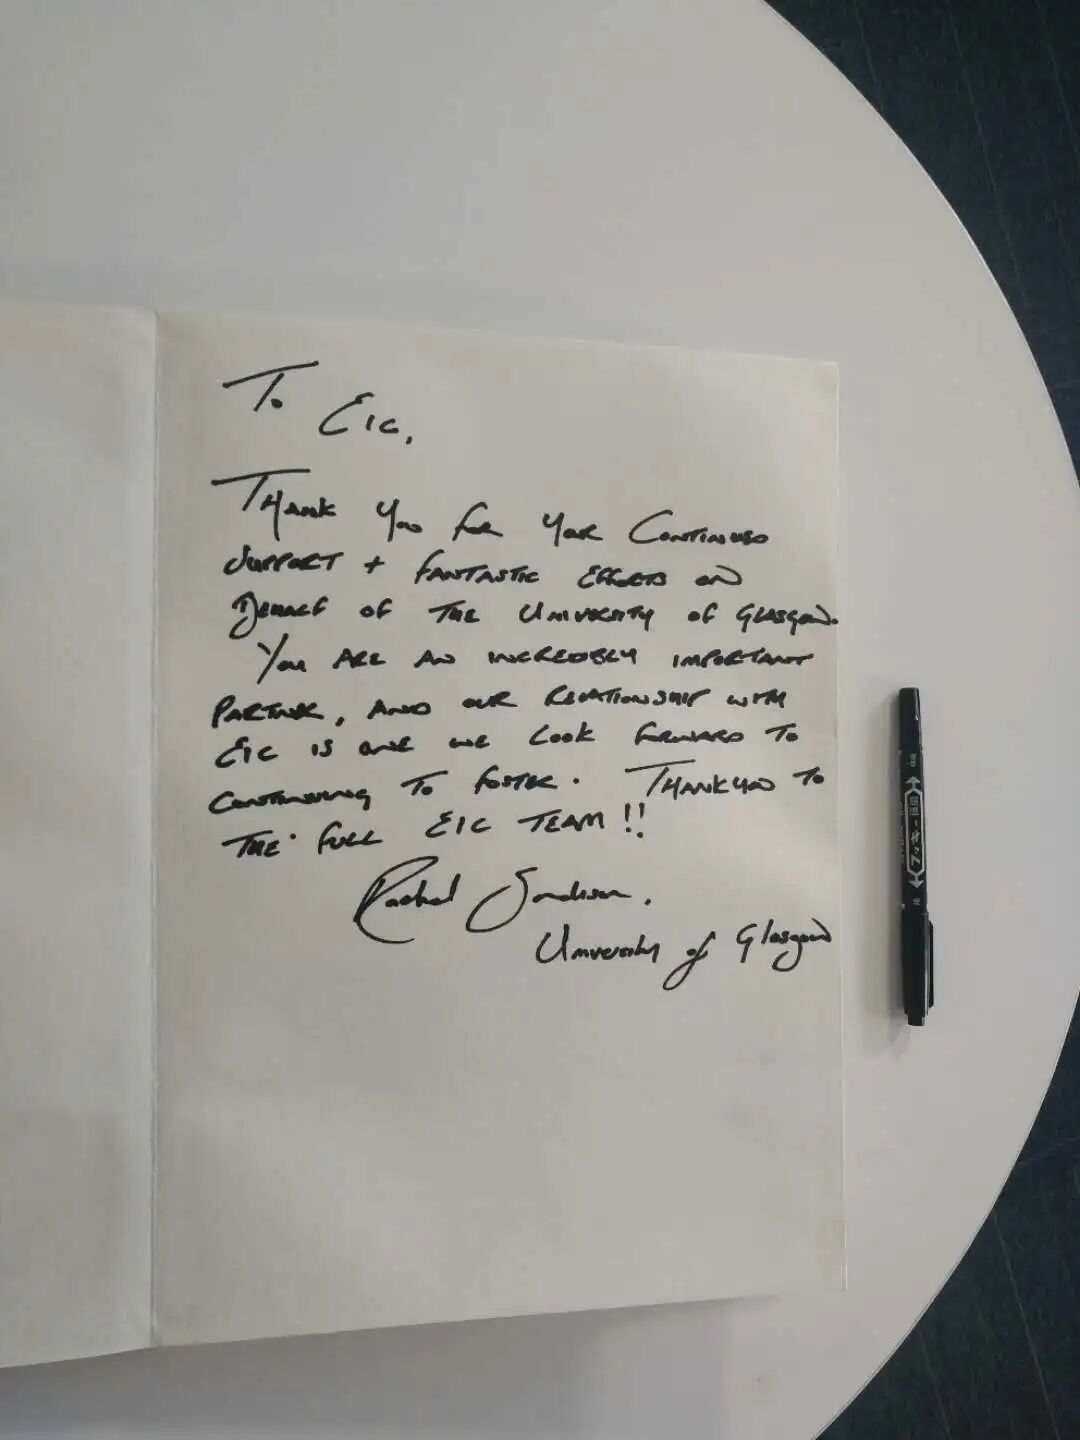 To EIC,
THANK YOU FOR YOUR CONTINUED
SUPPORT + FANTASTIC EFFORTS ON
BEHALF OF THE UNIVERSITY OF GLASGOW.
YOU ARE AN INCREDIBLY IMPORTANT
PARTNER, AND OUR RELATIONSHIP WITH
EIC IS ONE WE LOOK FORWARD TO
CONTINUING TO FOSTER. THANK YOU TO
THE FULL EIC TEAM!!
Rachel Sandison.
University of Glasgow